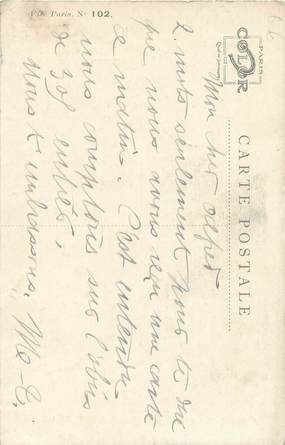 P.D. Paris. N° 102.
COLOR
PARIS
CARTE POSTALE
Mon cher Alfred
2 mots seulement pour te dire
que nous avons reçu une carte
ce matin. C'est entendu
nous comptons sur
de 30 entrées,
nous t'embrassons. M-C.